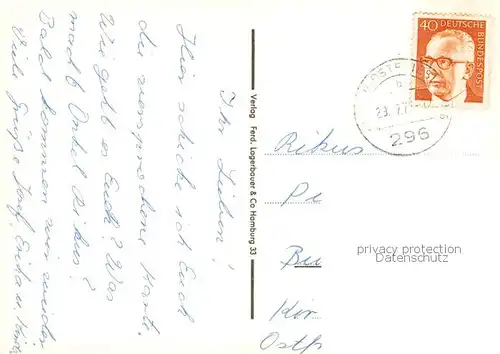 Ihr Lieben!
Hier schicke ich Euch
die versprochene Karte.
Wie geht es Euch? Was
macht Onkel Rikus?
Bald kommen wir wieder
Viele Grüße Josef,
Verlag Ferd. Lagerbauer & Co Hamburg 33
40
DEUTSCHE
BUNDESPOST
296
Rikus
Pe
Bu
Kir
Ostf
privacy protection
Datenschutz